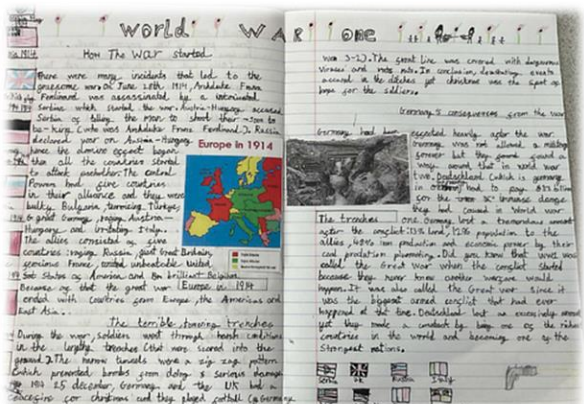 world WAR one
1914
How The War started
There were many incidents that led to the
gruesome war. On June 28th 1914, Archduke Franz
Ferdinand was assassinated by a
Serbian which started the war. Austria-Hungary accused
Serbia of telling the man to shoot their soon to
be king (who was Archduke Franz Ferdinand). Russia
declared war on Austria-Hungary
hence the
then all the countries started
to attack eachother. The central
Powers had five countries
in their alliance and they were
bulky Bulgaria, terrorising Turkey,
great Germany, raging Austria
Hungary and irritating Italy.
The allies consisted of five
countries raging Russia, great Great Britain,
ferocious France, United unbeatable United
States of America and Be brilliant Belgium.
Because of that the great war
ended with countries from Europe, the Americas and
East Asia.
Europe in 1914
Europe in 1914
The terrible trenches
During the war soldiers went through harsh conditions
in the lengthy trenches that were scored into the
ground. The narrow tunnels were a zig zag pattern
which prevented bombs from doing serious damage.
In 1914 25 december, Germany and the UK had a
for christmas and they played football (Germany
won 3-2). The great line was covered with dangerous
viruses and rats. In conclusion, devastating events
occured in the ditches yet christmas was the spot of
hope for the soldiers.
Germany's consequences from the war
Germany had been
expected heavily after the war.
Germany was not allowed a military
forever but they found a
way around that in world war
two. Deutschland (which is germany
in had to pay
for the damage
they had caused in World war
The trenches
one. Germany lost a tremendous amount
after the conflict: 13% land, 12% population to the
allies, 48% iron production and economic power by their
coal production plummeting. Did you know that WW1 was
called the Great War when the conflict started
because they never knew another warfare would
happen. It was also called the Great war since it
was the biggest armed conflict that had ever
happened at the time. Deutschland lost an excessively
yet they made a comeback by being one of the richest
countries in the world and becoming one of the
strongest nations.
Serbia UK Russia Italy